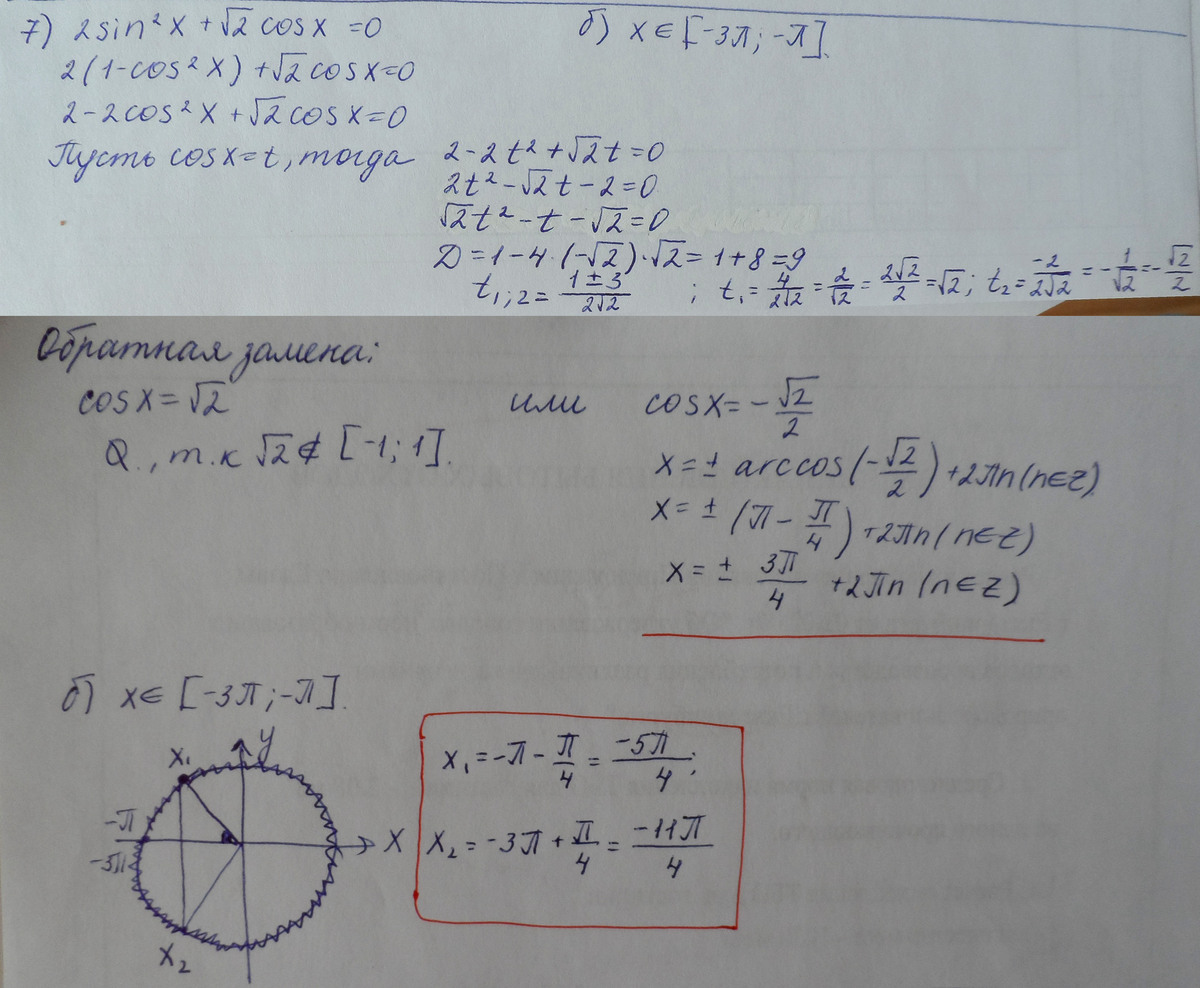 7) 2sin²x + √2 cosx = 0 б) x ∈ [-3π; -π].
2(1-cos²x) + √2 cosx = 0
2-2cos²x + √2 cosx = 0
Пусть cosx = t, тогда 2-2t² + √2t = 0
2t² - √2t - 2 = 0
√2t² - t - √2 = 0
D = 1 - 4·(-√2)·√2 = 1 + 8 = 9
t₁;₂ = (1±3)/(2√2) ; t₁ = 4/(2√2) = 2/√2 = 2√2/2 = √2; t₂ = -2/(2√2) = -1/√2 = -√2/2
Обратная замена:
cosx = √2 или cosx = -√2/2
Q., т.к √2 ∉ [-1; 1].
x = ± arccos(-√2/2) + 2πn (n∈Z)
x = ± (π - π/4) + 2πn (n∈Z)
x = ± 3π/4 + 2πn (n∈Z)
б) x ∈ [-3π; -π].
y
x₁
-π
-3π
x
x₂
x₁ = -π - π/4 = -5π/4;
x₂ = -3π + π/4 = -11π/4